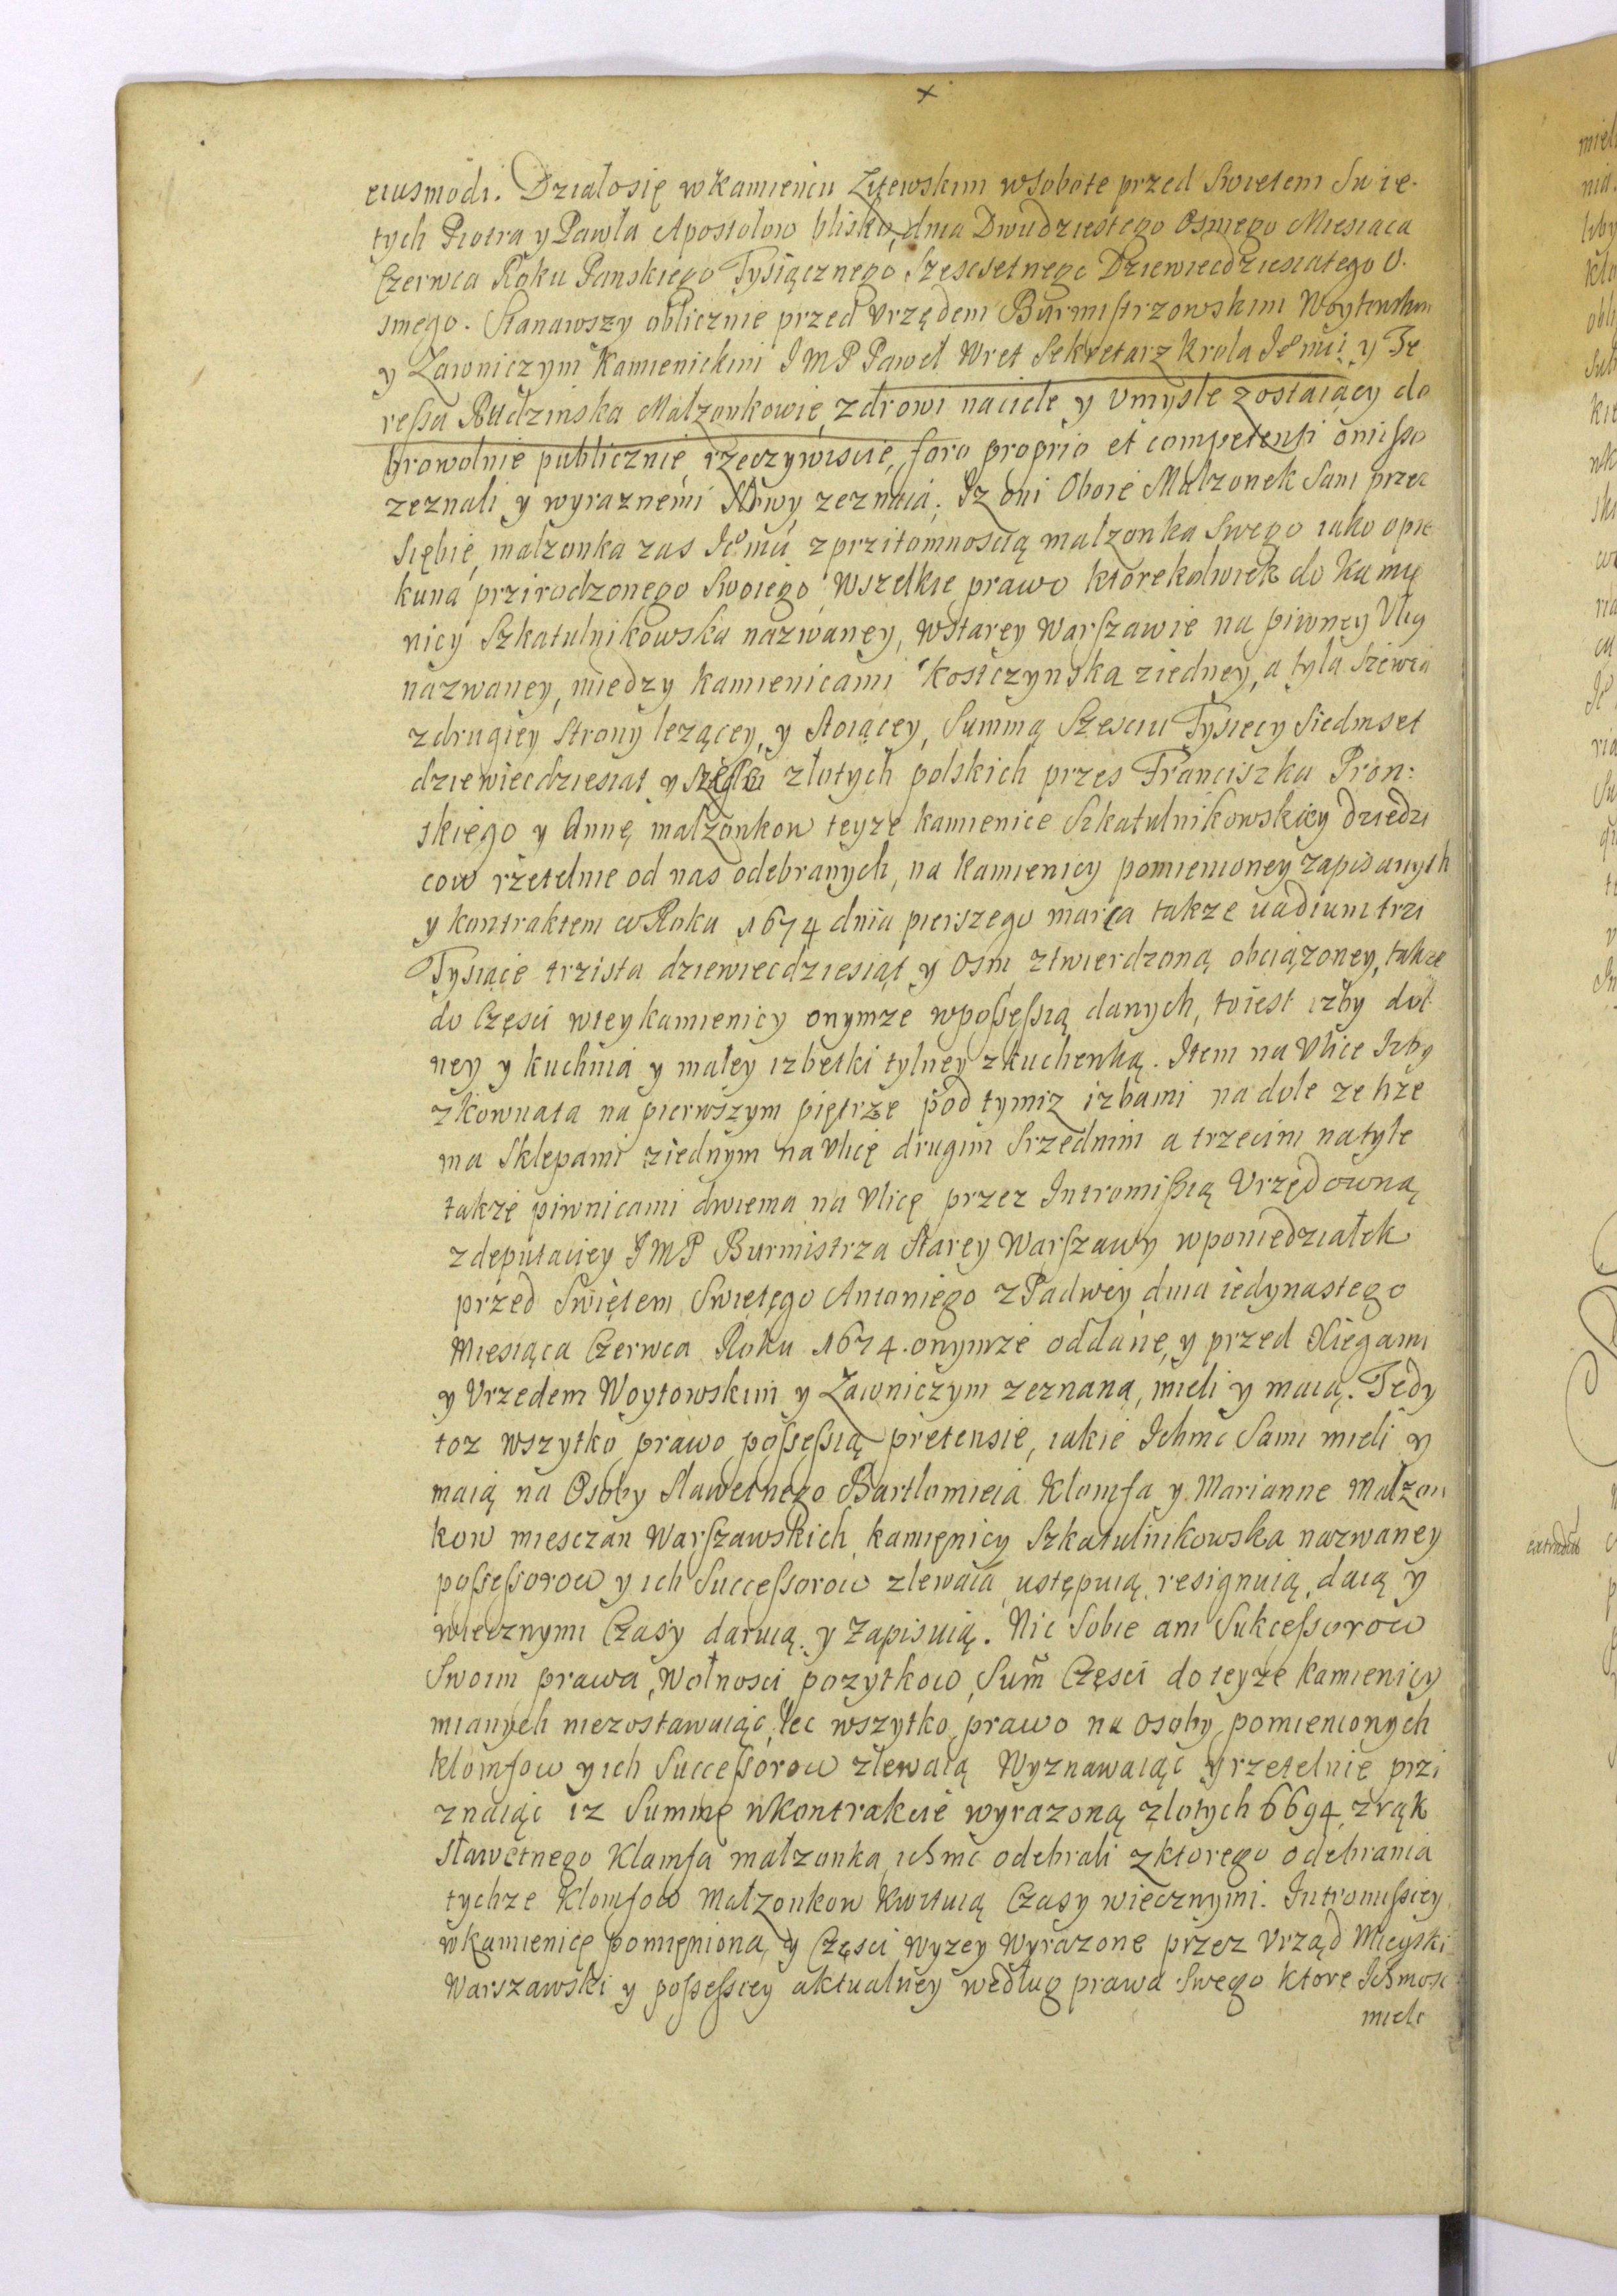 x
eiusmodi. Działosię w Kamieńcu Litewskim w Sobote przed Swietem Swię-
tych Piotra y Pawła Apostołow blisko, dnia Dwudziestego Osmego Miesiaca
Czerwca Roku Panskiego Tysiącznego Szescsetnego Dziewiecdziesiatego O-
smego. Stanawszy oblicznie przed Vrzędem Burmistrzowskim Woytowskim
y Ławniczym Kamienickim I M P Paweł Wret Sekretarz Krola Ie° mci y Te
ressa Rudzinska Małzonkowie, zdrowi naciele y Vmysle zostaiący do
browolnie publicznie rzeczywiscie, foro proprio et competenti omisso
zeznali y wyraznemi Słowy zeznaią; Iz oni Oboie Małzonek Sam przez
Siębie, małzonka zas Ie° mci z przitomnoscią małzonka Swego iako opie
kuna przirodzonego Swoiego Wszelkie prawo ktorekolwiek do Kamię
nicy Szkatulnikowska nazwaney, wstarey Warszawie na piwney Vlicy
nazwaney, miedzy kamienicami Kosiczynska ziedney, a tyla Szewca
zdrugiey Strony lezącey, y Stoiącey, Summą Szesciu Tysiecy Siedmset
dziewiecdziesiat y złotych polskich przes Franciszka Pron:
skiego y Annę małzonkow teyze kamienice Szkatulnikowskiey dziedzi
cow rzetelnie od nas odebranych, na Kamienicy pomienioney zapisanych
y kontraktem w Roku 1674 dnia pierszego marca takze vadium trzi
Tysiące trzista dziewiecdziesiąt y Osm ztwierdzoną obciązoney, takze
do Części wtey kamienicy onymze wpossessią danych, toiest izby dol
ney y kuchnia y małey izbetki tylney zkuchenką. Item na Vlice Izby
zkownata na pierwszym piętrze pod tymiz izbami na dole ze trze
ma Sklepami ziednym na Vlicę drugim Srzednim a trzecim natyle
takze piwnicami dwiema na Vlicę przez Intromissią Vrzędowną
zdeputaciey I M P Burmistrza Starey Warszawy wponiedziałek
przed Swiętem Swiętego Antoniego zPadwey dnia iedynastego
Miesiąca Czerwca Roku 1674. onymze oddane, y przed Xiegami
y Vrzedem Woytowskim y Ławniczym zeznaną, mieli y maią. Tedy
toz wszytko prawo possessią pretensie, iakie Ichmc Sami mieli y
maią na Osoby Sławetnego Bartłomieia Klomfa y Marianne Małzon
kow miesczan Warszawskich, kamięnicy Szkatulnikowska nazwaney
possessorow y ich Successorow zlewaia ustępuią, resignuią, daią y
wiecznymi Czasy daruią y Zapisuią. Nic Sobie ani Sukcessorow
Swoim prawa, Wolnosci pozytkow, Sum̃ Części do teyze Kamienicy
mianych niezostawuiąc, lec wszytko prawo na osoby pomienionych
klomfow y ich Successorow zlewaią Wyznawaiąc y rzetelnie przi
znaiąc iz Summę wkontrakcie wyrazoną złotych 6694 zrąk
Sławetnego Klamfa małzonka ichmc odebrali zktorego odebrania
tychze Klomfow Małzonkow Kwituią Czasy wiecznymi. Intromissiey
wkamienicę pomięniona, y Części Wyzey Wyrazone przez Vrząd Mieyski
Warszawski y possessiey aktualney według prawa Swego ktore Ichmosc
mieli